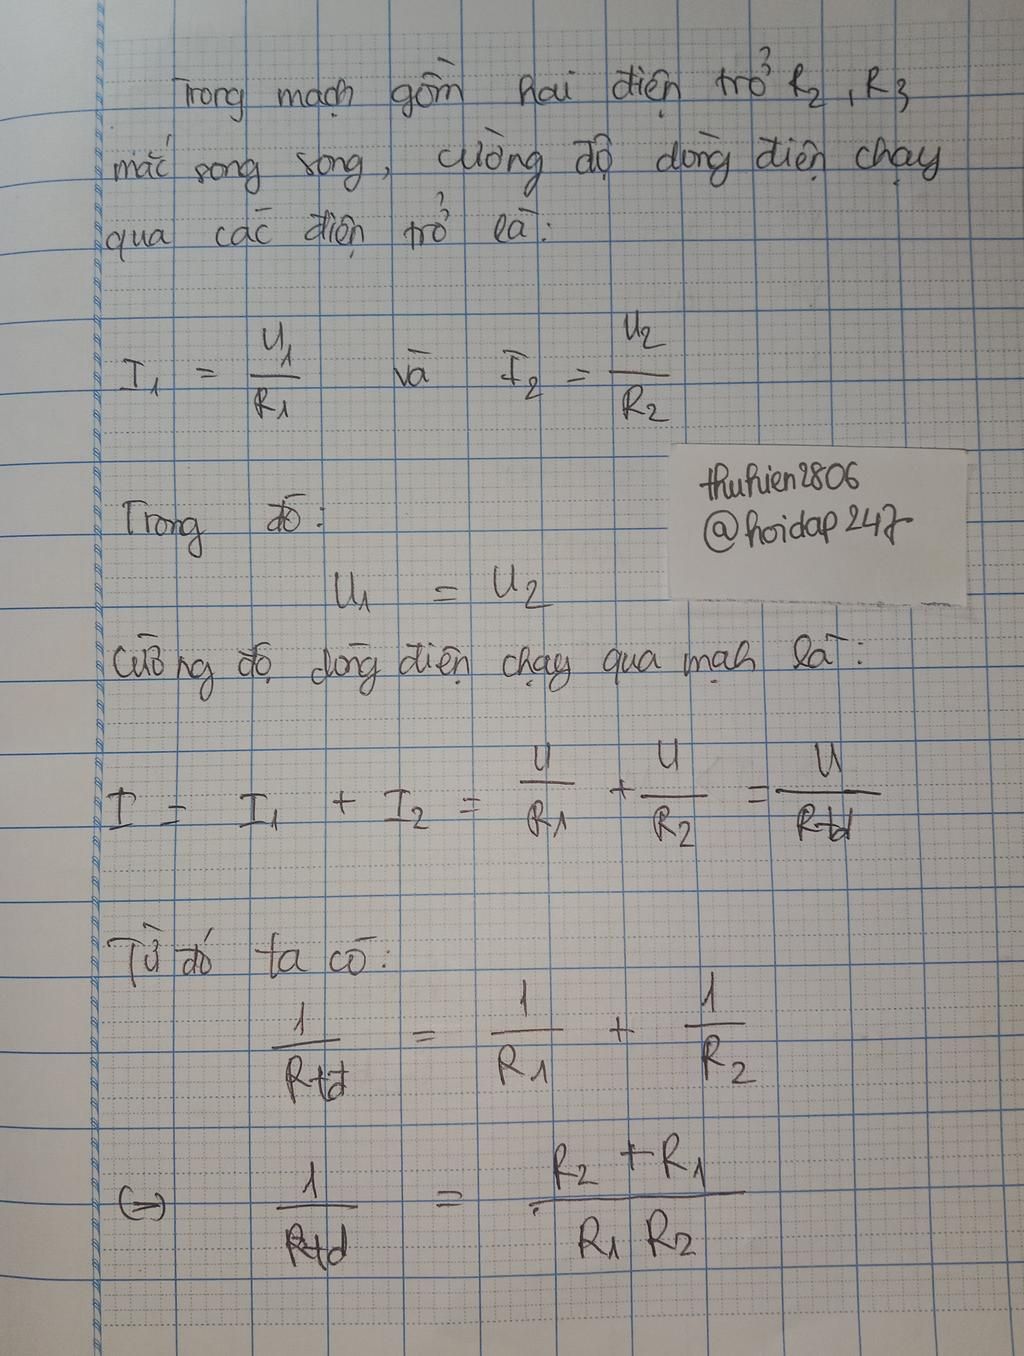 Trong mạch gồm hai điện trở R2, R3
mắc song song, cường độ dòng điện chạy
qua các điện trở là:
I1 = U1/R1 và I2 = U2/R2
thuhien2806
@hoidap247
Trong đó:
U1 = U2
Cường độ dòng điện chạy qua mạch là:
I = I1 + I2 = U/R1 + U/R2 = U/Rtđ
Từ đó ta có:
1/Rtđ = 1/R1 + 1/R2
(=) 1/Rtđ = R2 + R1/R1 R2